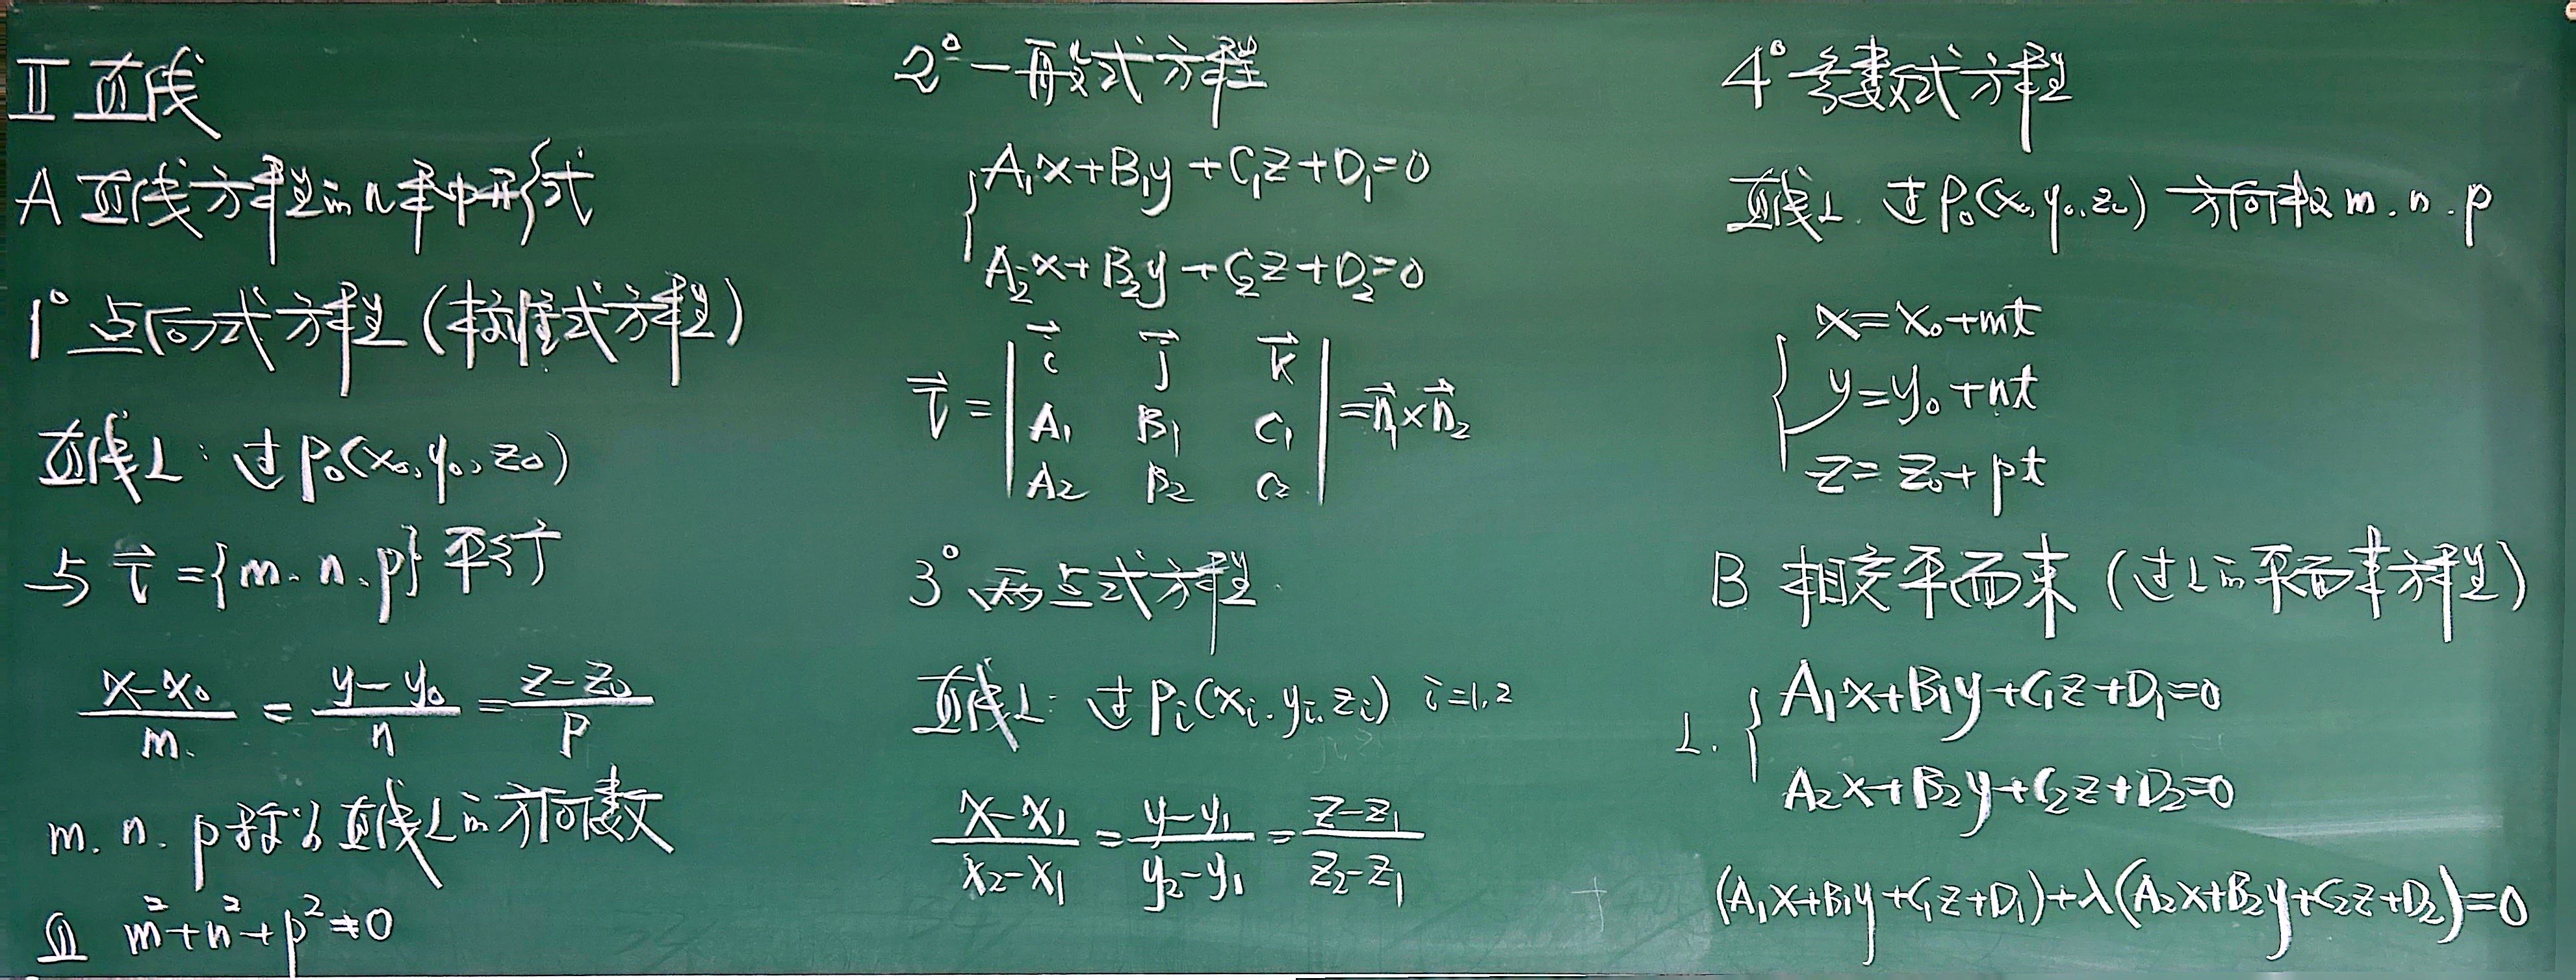 II 直线
A 直线方程的几种形式
1° 点向式方程(标准式方程)
直线L: 过P₀(x₀,y₀,z₀)
与 τ⃗={m.n.p}平行
(x-x₀)/m = (y-y₀)/n = (z-z₀)/p
m.n.p 称为直线L的方向数
且 m²+n²+p²≠0
2° 一般式方程
{A₁x+B₁y+C₁z+D₁=0
A₂x+B₂y+C₂z+D₂=0
τ⃗ = | i⃗ j⃗ k⃗ |
| A₁ B₁ C₁ | = n⃗₁×n⃗₂
| A₂ B₂ C₂ |
3° 两点式方程
直线L: 过Pᵢ(xᵢ.yᵢ.zᵢ) i=1,2
(x-x₁)/(x₂-x₁) = (y-y₁)/(y₂-y₁) = (z-z₁)/(z₂-z₁)
4° 参数式方程
直线L. 过P₀(x₀,y₀,z₀) 方向数 m.n.p
{x=x₀+mt
y=y₀+nt
z=z₀+pt
B 相交平面束(过L的平面束方程)
L. {A₁x+B₁y+C₁z+D₁=0
A₂x+B₂y+C₂z+D₂=0
(A₁x+B₁y+C₁z+D₁)+λ(A₂x+B₂y+C₂z+D₂)=0